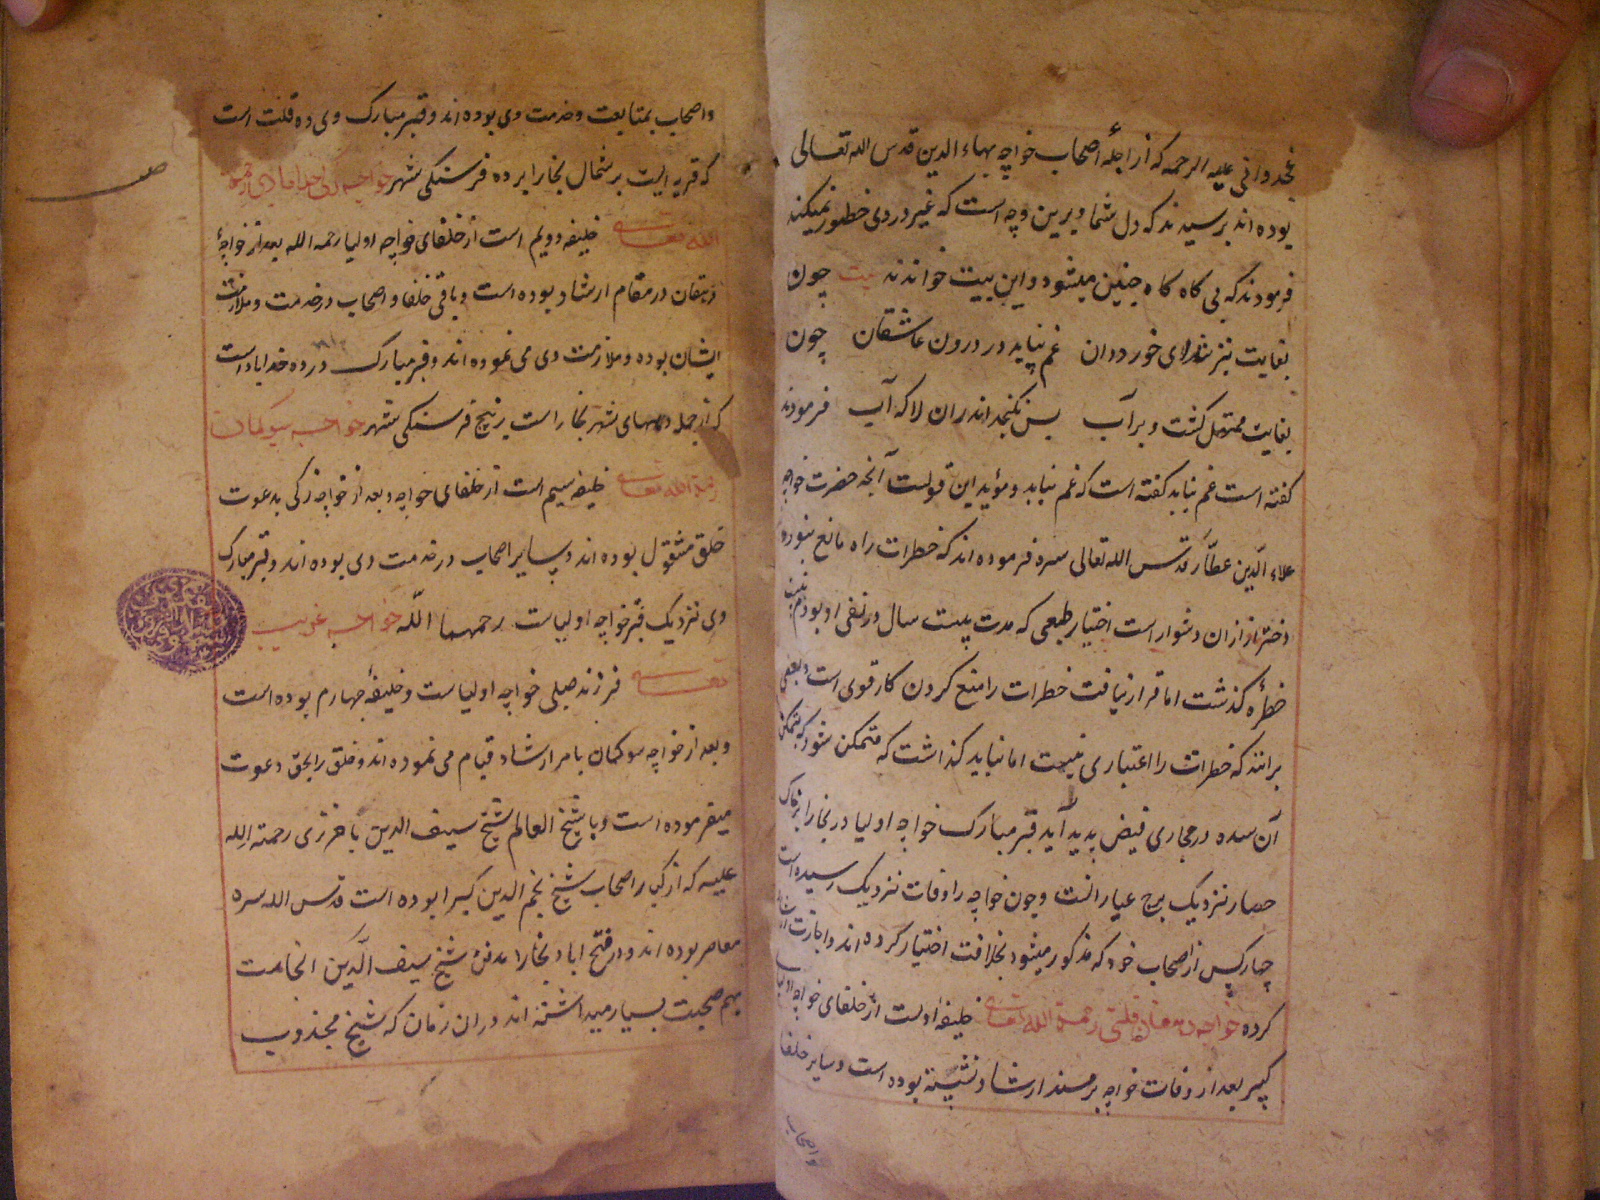 غجدوانی علیه الرحمه که از اجلهٔ اصحاب خواجه بهاء الدین قدس الله تعالی
بوده اند پرسیدند که دل شما برین وجه است که غیر در وی خطور نمیکند
فرمودند که بی گاه گاه چنین میشود و این بیت خواندند بیت چون
بغایت تیز شد خور دوان غم نپاید در درون عاشقان چون
بغایت ممتلی گشت و بر آب پس نگنجد اندران لاکه آب فرمودند
گفته است غم نیاید گفته است که غم نپاید و مؤید این قولست آنچه حضرت خواجه
علاء الدین عطار قدس الله تعالی سره فرموده اند که خطرات راه مانع نبود
احتراز از آن دشوار است اختیار طبعی که مدت بیست سال در نفی او بودم
خطره گذشت اما قرار نیافت خطرات را منع کردن کار قوی است و بعضی
برانند که خطرات را اعتباری نیست اما نباید گذاشت که متمکن شود که بتمکن
آن سده در مجاری فیض پدید آید قبر مبارک خواجه اولیا در بخارا بر خاک
حصار نزدیک برج عیارانست و چون خواجه را وفات نزدیک رسیده است
چهار کس از اصحاب خود که مذکور میشود بخلافت اختیار کرده اند و اجازت ارشاد
کرده خواجه دهقان قلتی رحمة الله تعالی خلیفه اولست از خلفای خواجه اولیا
کبیر بعد از وفات خواجه بر مسند ارشاد نشسته بوده است و سایر خلفا
واصحاب
واصحاب بمتابعت و خدمت وی بوده اند و قبر مبارک وی ده قلت است
که قریه ایست بر شمال بخارا بر دو فرسنگی شهر خواجه زکی خدابادی رحمه
الله تعالی خلیفه دویم است از خلفای خواجه اولیا رحمه الله بعد از خواجهٔ
دهقان در مقام ارشاد بوده است و باقی خلفا و اصحاب در خدمت و ملازمت
ایشان بوده و ملازمت وی می نموده اند و قبر مبارک در ده خداباد است
که از جمله دههای شهر بخارا است بر پنج فرسنگی شهر خواجه سوکمان
رحمة الله تعالی خلیفه سیم است از خلفای خواجه و بعد از خواجه زکی بدعوت
خلق مشغول بوده اند و سایر اصحاب در خدمت وی بوده اند و قبر مبارک
وی نزدیک قبر خواجه اولیاست رحمهما الله خواجه غریب
تعالی فرزند صلبی خواجه اولیاست و خلیفهٔ چهارم بوده است
و بعد از خواجه سوکمان بامر ارشاد قیام می نموده اند و خلق را بحق دعوت
میفرموده است و با شیخ العالم شیخ سیف الدین باخرزی رحمة الله
علیه که از کبار اصحاب شیخ نجم الدین کبرا بوده است قدس الله سره
معاصر بوده اند و در فتح اباد بخارا که مدفن شیخ سیف الدین انجاست
بهم صحبت بسیار میداشته اند در ان زمان که شیخ مجذوب